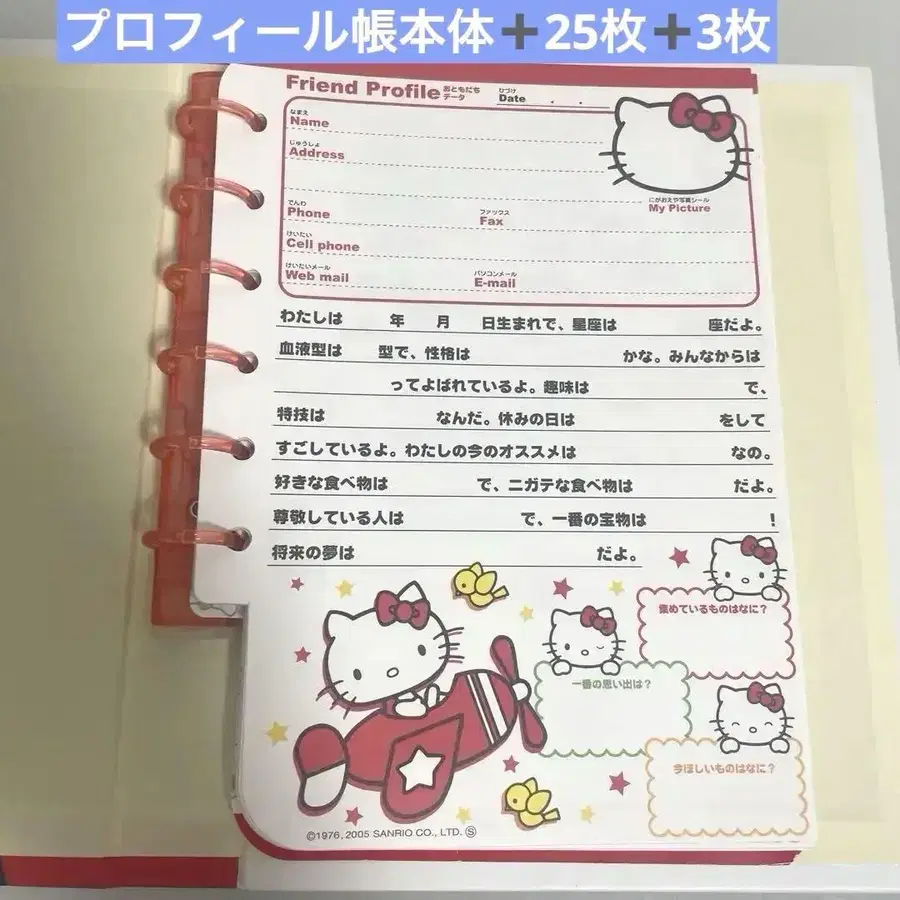 プロフィール帳本体➕25枚➕3枚
Friend Profile おともだちデータ ひづけ Date . .
なまえ
Name
じゅうしょ
Address
にがおえや写真シール
My Picture
でんわ ファックス
Phone Fax
けいたい
Cell phone
けいたいメール パソコンメール
Web mail E-mail
わたしは 年 月 日生まれで、星座は 座だよ。
血液型は 型で、性格は かな。みんなからは
ってよばれているよ。趣味は で、
特技は なんだ。休みの日は をして
すごしているよ。わたしの今のオススメは なの。
好きな食べ物は で、ニガテな食べ物は だよ。
尊敬している人は で、一番の宝物は !
将来の夢は だよ。
集めているものはなに?
一番の思い出は?
今ほしいものはなに?
©1976, 2005 SANRIO CO., LTD. Ⓢ